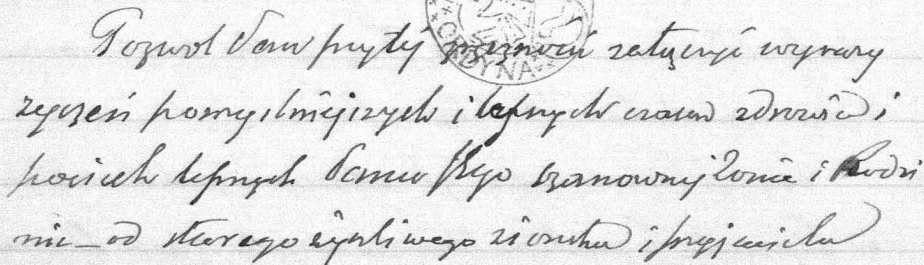 Pozwol Panu przytej załączyć wyrazy
życzeń pomyślniejszych i lepszych czasów zdrowia i
pociech lepszych Panu Jego szanownej Żonie i Rodzi
nie – od starego życzliwego ziomka i przyjaciela
ORDYNA